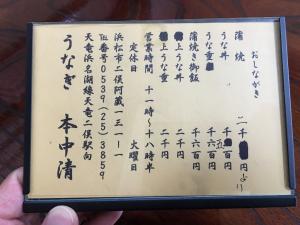 おしながき
蒲焼 二千円より
うな丼 千五百円
うな重 千六百円
蒲焼き御飯 千六百円
上うな丼 二千円
上うな重 二千円
営業時間 十一時〜十八時半
定休日 火曜日
浜松市二俣阿蔵一三一ー一
℡番号0539(25)3859
天竜浜名湖線天竜二俣駅向
うなぎ 本中清